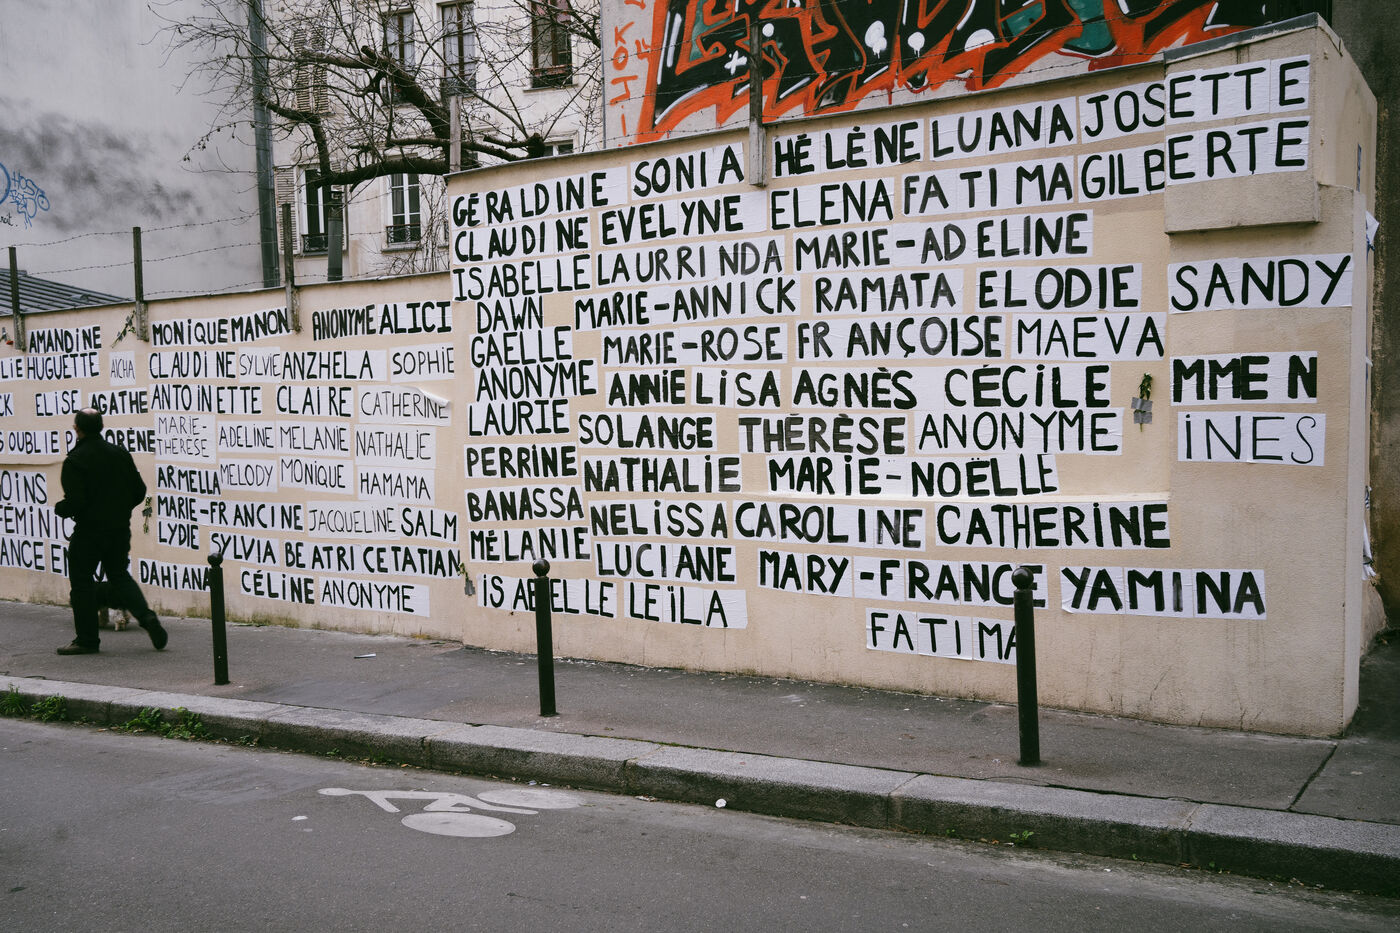 GÉRALDINE SONIA HÉLÈNE LUANA JOSETTE
CLAUDINE EVELYNE ELENA FATIMA GILBERTE
ISABELLE LAURRINDA MARIE-ADELINE
DAWN MARIE-ANNICK RAMATA ELODIE SANDY
GAELLE MARIE-ROSE FRANÇOISE MAEVA
ANONYME ANNIE LISA AGNÈS CÉCILE MMEN
LAURIE SOLANGE THÉRÈSE ANONYME INES
PERRINE NATHALIE MARIE-NOËLLE
BANASSA NELISSA CAROLINE CATHERINE
MÉLANIE LUCIANE MARY-FRANCE YAMINA
ISABELLE LEÏLA FATIMA
AMANDINE MONIQUE MANON ANONYME ALICI
LIE HUGUETTE AICHA CLAUDINE SYLVIE ANZHELA SOPHIE
CK ELISE AGATHE ANTOINETTE CLAIRE CATHERINE
S OUBLIE P LORÈNE MARIE-THÉRÈSE ADELINE MELANIE NATHALIE
OINS ARMELLA MELODY MONIQUE HAMAMA
FÉMINIC MARIE-FRANCINE JACQUELINE SALM
ANCE EN LYDIE SYLVIA BEATRICE TATIAN
DAHIANA CÉLINE ANONYME